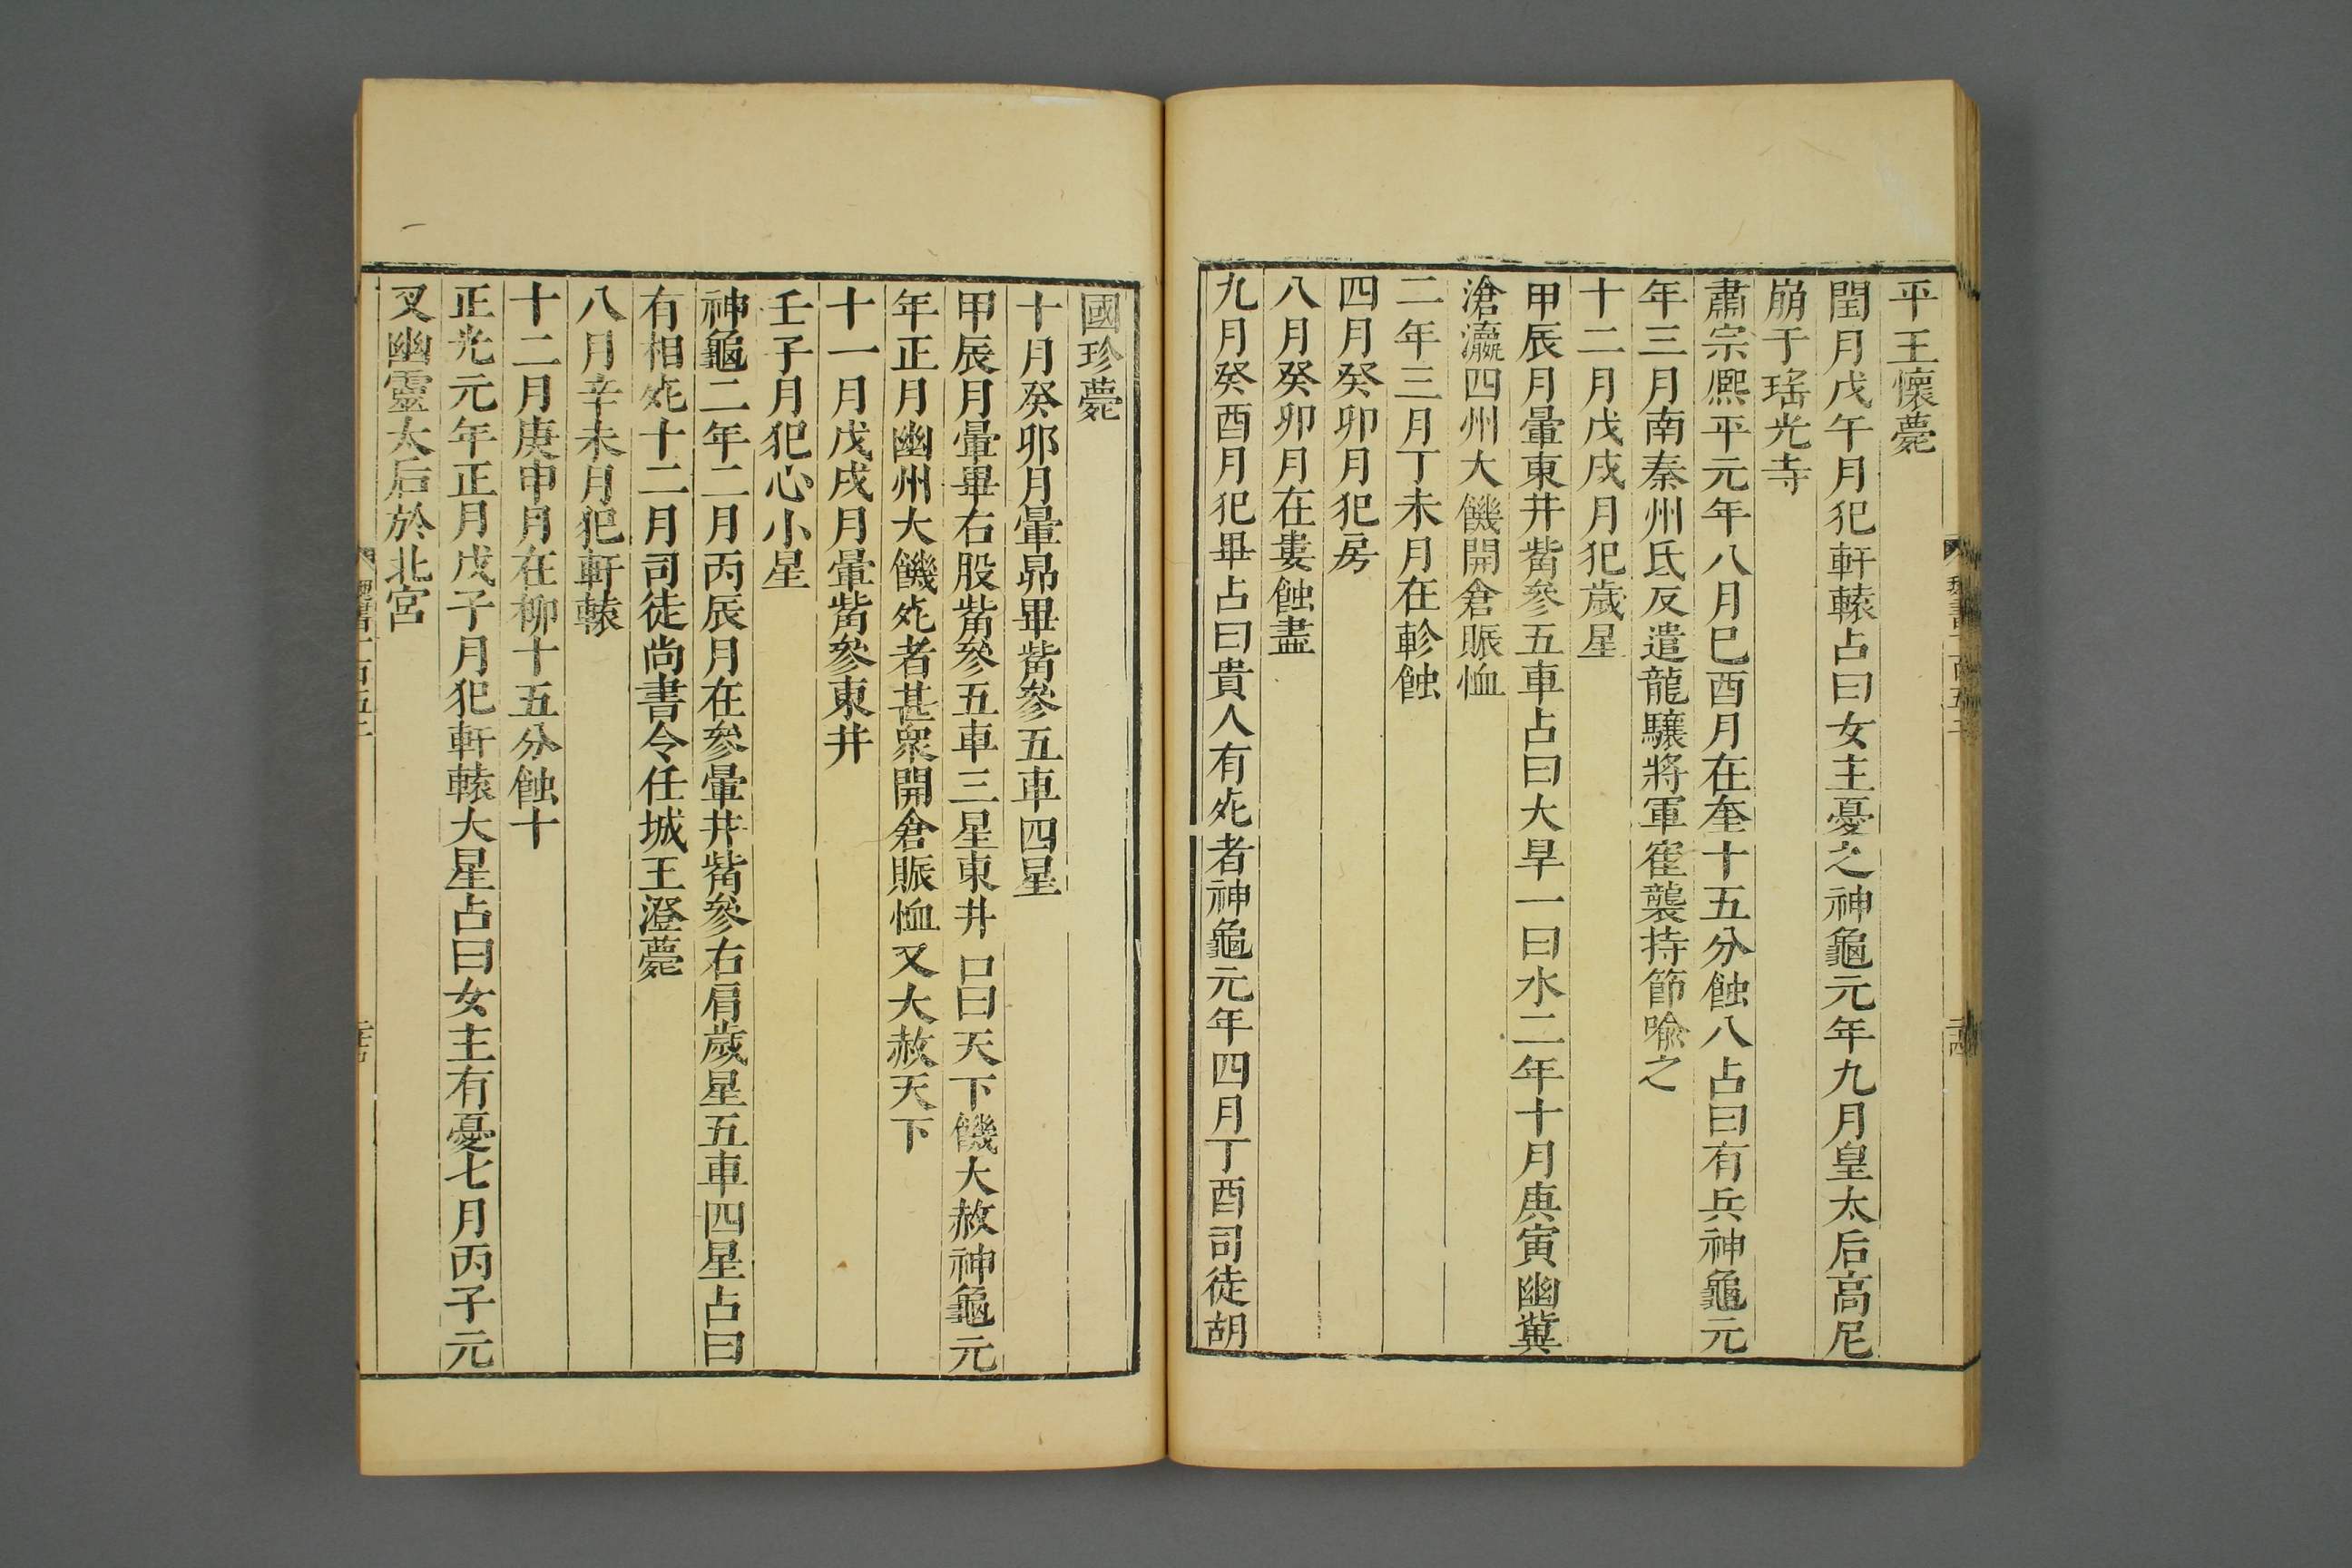 平王懷薨
閏月戊午月犯軒轅占曰女主憂之神龜元年九月皇太后高尼
崩于瑤光寺
肅宗熈平元年八月巳酉月在奎十五分蝕八占曰有兵神龜元
年三月南秦州氐反遣龍驤將軍崔襲持節喻之
十二月戊戌月犯歲星
甲辰月暈東井觜參五車占曰大旱一曰水二年十月庚寅幽冀
滄瀛四州大饑開倉賑恤
二年三月丁未月在軫蝕
四月癸卯月犯房
八月癸卯月在婁蝕盡
九月癸酉月犯畢占曰貴人有死者神龜元年四月丁酉司徒胡
國珍薨
十月癸卯月暈昴畢觜參五車四星
甲辰月暈畢右股觜參五車三星東井曰天下饑大赦神龜元
年正月幽州大饑死者甚衆開倉賑恤又大赦天下
十一月戊戌月暈觜參東井
壬子月犯心小星
神龜二年二月丙辰月在參暈井觜參右肩歲星五車四星占曰
有相死十二月司徒尚書令任城王澄薨
八月辛未月犯軒轅
十二月庚申月在柳十五分蝕十
正光元年正月戊子月犯軒轅大星占曰女主有憂七月丙子元
叉幽靈太后於北宮